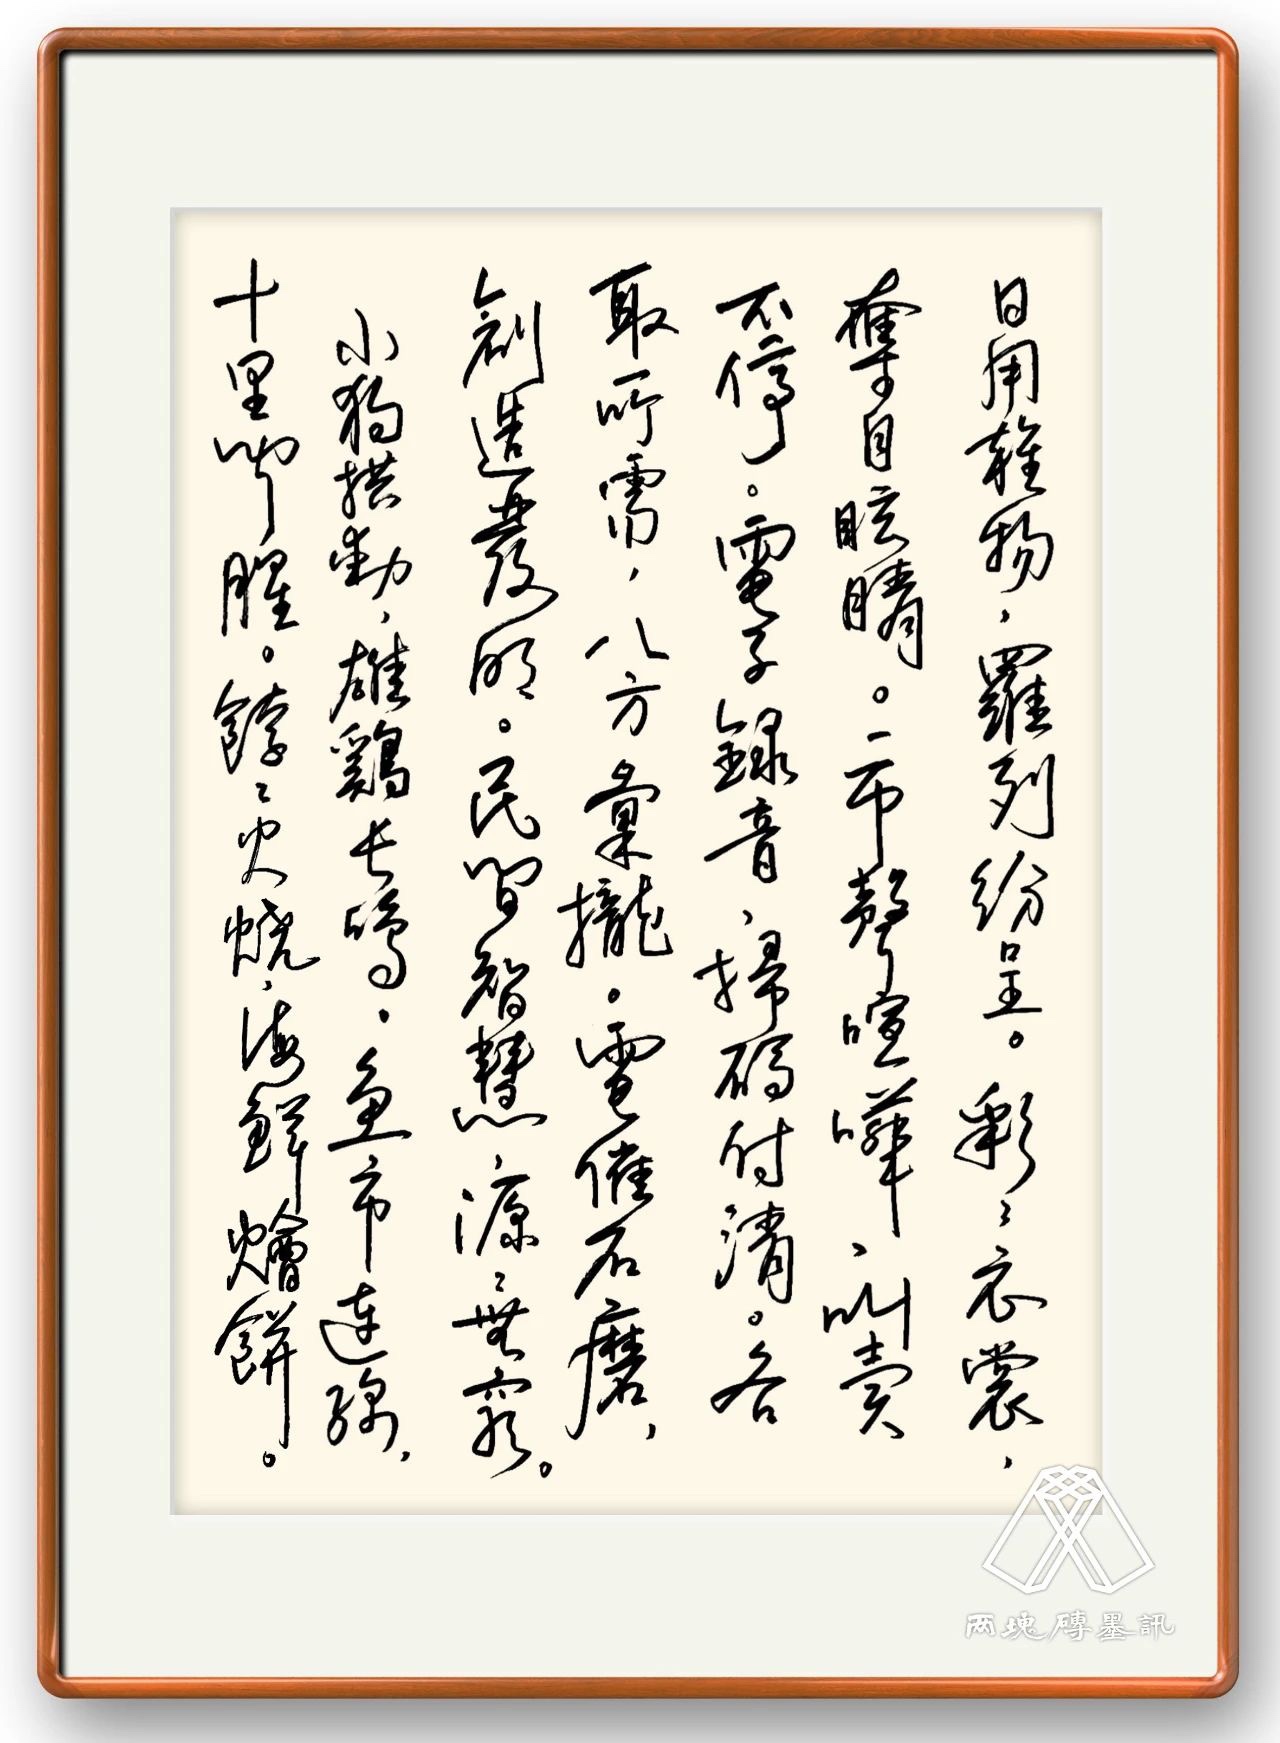 日用雜物，羅列紛呈。彩彩衣裳，
奪目眩睛。市聲喧嘩，叫賣
不停。電子錄音，掃碼付清。各
取所需，八方彙攏。電催石磨，
創造發明。民間智慧，源源無窮。
小狗拱動，雄鷄長鳴。魚市連綿，
十里聞腥。餑餑火燒，海鮮燴餅。
两塊磚墨訊